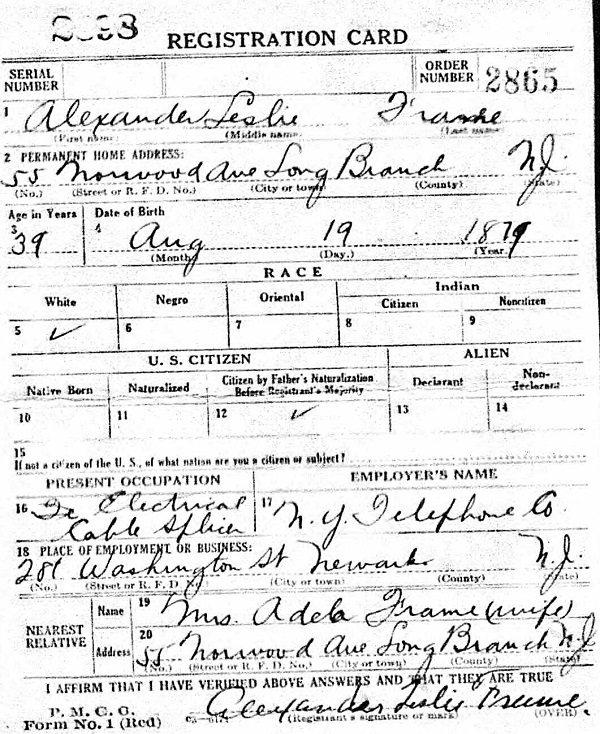 REGISTRATION CARD
SERIAL NUMBER
ORDER NUMBER 2865
1 Alexander Leslie Frame
(First name) (Middle name) (Last name)
2 PERMANENT HOME ADDRESS:
55 Norwood Ave Long Branch N.J.
(No.) (Street or R. F. D. No.) (City or town) (County) (State)
Age in Years Date of Birth
3 39 4 Aug 19 1879
(Month) (Day.) (Year.
RACE
White Negro Oriental Indian
Citizen Noncitizen
5 ✓ 6 7 8 9
U. S. CITIZEN ALIEN
Native Born Naturalized Citizen by Father's Naturalization Before Registrant's Majority Declarant Non-declarant
10 11 12 ✓ 13 14
15
If not a citizen of the U. S., of what nation are you a citizen or subject?
PRESENT OCCUPATION EMPLOYER'S NAME
16 Electrical 17 N. Y. Telephone Co.
Cable Splicer
18 PLACE OF EMPLOYMENT OR BUSINESS:
281 Washington St Newark N.J.
(No.) (Street or R. F. D. No.) (City or town) (County) (State)
NEAREST RELATIVE
Name 19 Mrs. Adela Frame (wife)
Address 20 55 Norwood Ave Long Branch N.J.
(No.) (Street or R. F. D. No.) (City or town) (County) (State)
I AFFIRM THAT I HAVE VERIFIED ABOVE ANSWERS AND THAT THEY ARE TRUE
P. M. G. O.
Form No. 1 (Red) Alexander Leslie Frame
(Registrant's signature or mark) (OVER)